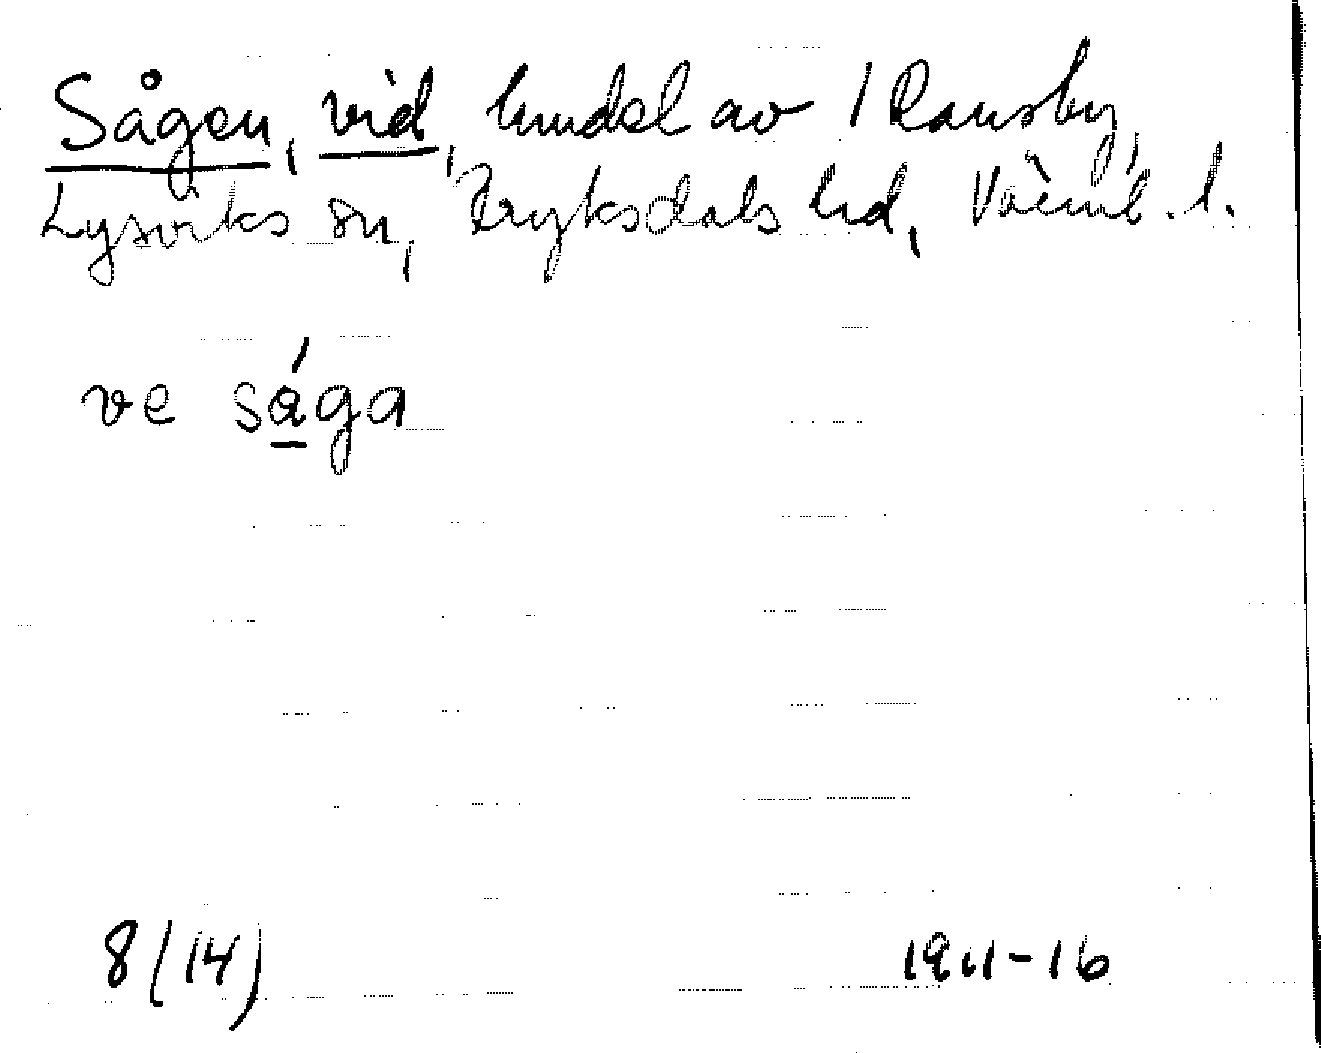 Sågen, vid, hmdel av 1 Ransby,
Lysviks sn, Fryksdals hd, Värml. l.
ve såga
8 (14) 1911-16